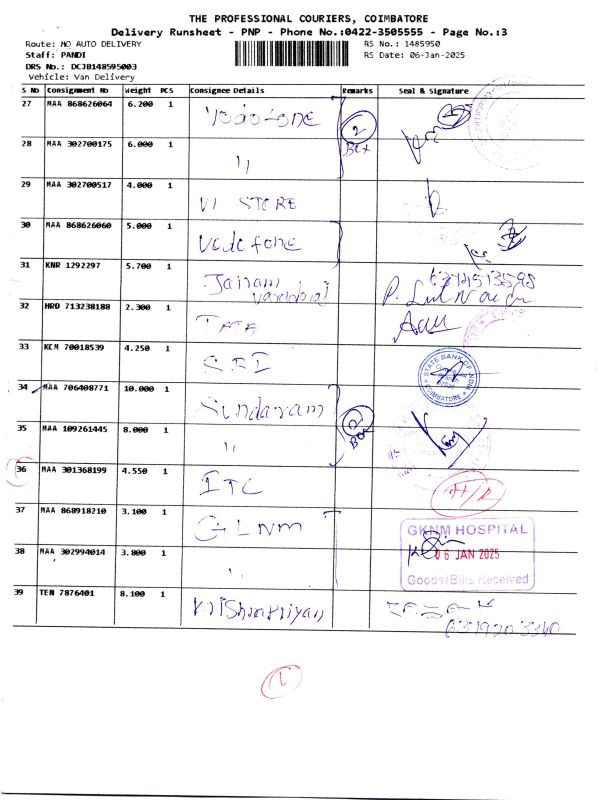 THE PROFESSIONAL COURIERS, COIMBATORE
Delivery Runsheet - PNP - Phone No.:0422-3505555 - Page No.:3
Route: NO AUTO DELIVERY
RS No.: 1485950
Staff: PANDI
RS Date: 06-Jan-2025
DRS No.: DCJB148595003
Vehicle: Van Delivery
S No Consignment No Weight PCS Consignee Details Remarks Seal & Signature
27 MAA 868626064 6.200 1 Vodofone 2 Box
28 MAA 302700175 6.000 1 "
29 MAA 302700517 4.000 1 VI STORE
30 MAA 868626060 5.000 1 Vodofone
31 KNR 1292297 5.700 1 Jairam
32 HRD 713238188 2.300 1 TATA
33 KCM 70018539 4.250 1 SBI STATE BANK OF INDIA COIMBATORE
34 MAA 706408771 10.000 1 Sundaram 2 Box
35 MAA 109261445 8.000 1 "
36 MAA 301368199 4.550 1 ITC
37 MAA 868918210 3.100 1 GKNM
GKNM HOSPITAL
38 MAA 302994014 3.800 1 "
06 JAN 2025
Goods/Bills Received
39 TEN 7876401 8.100 1 Krishnapriyan